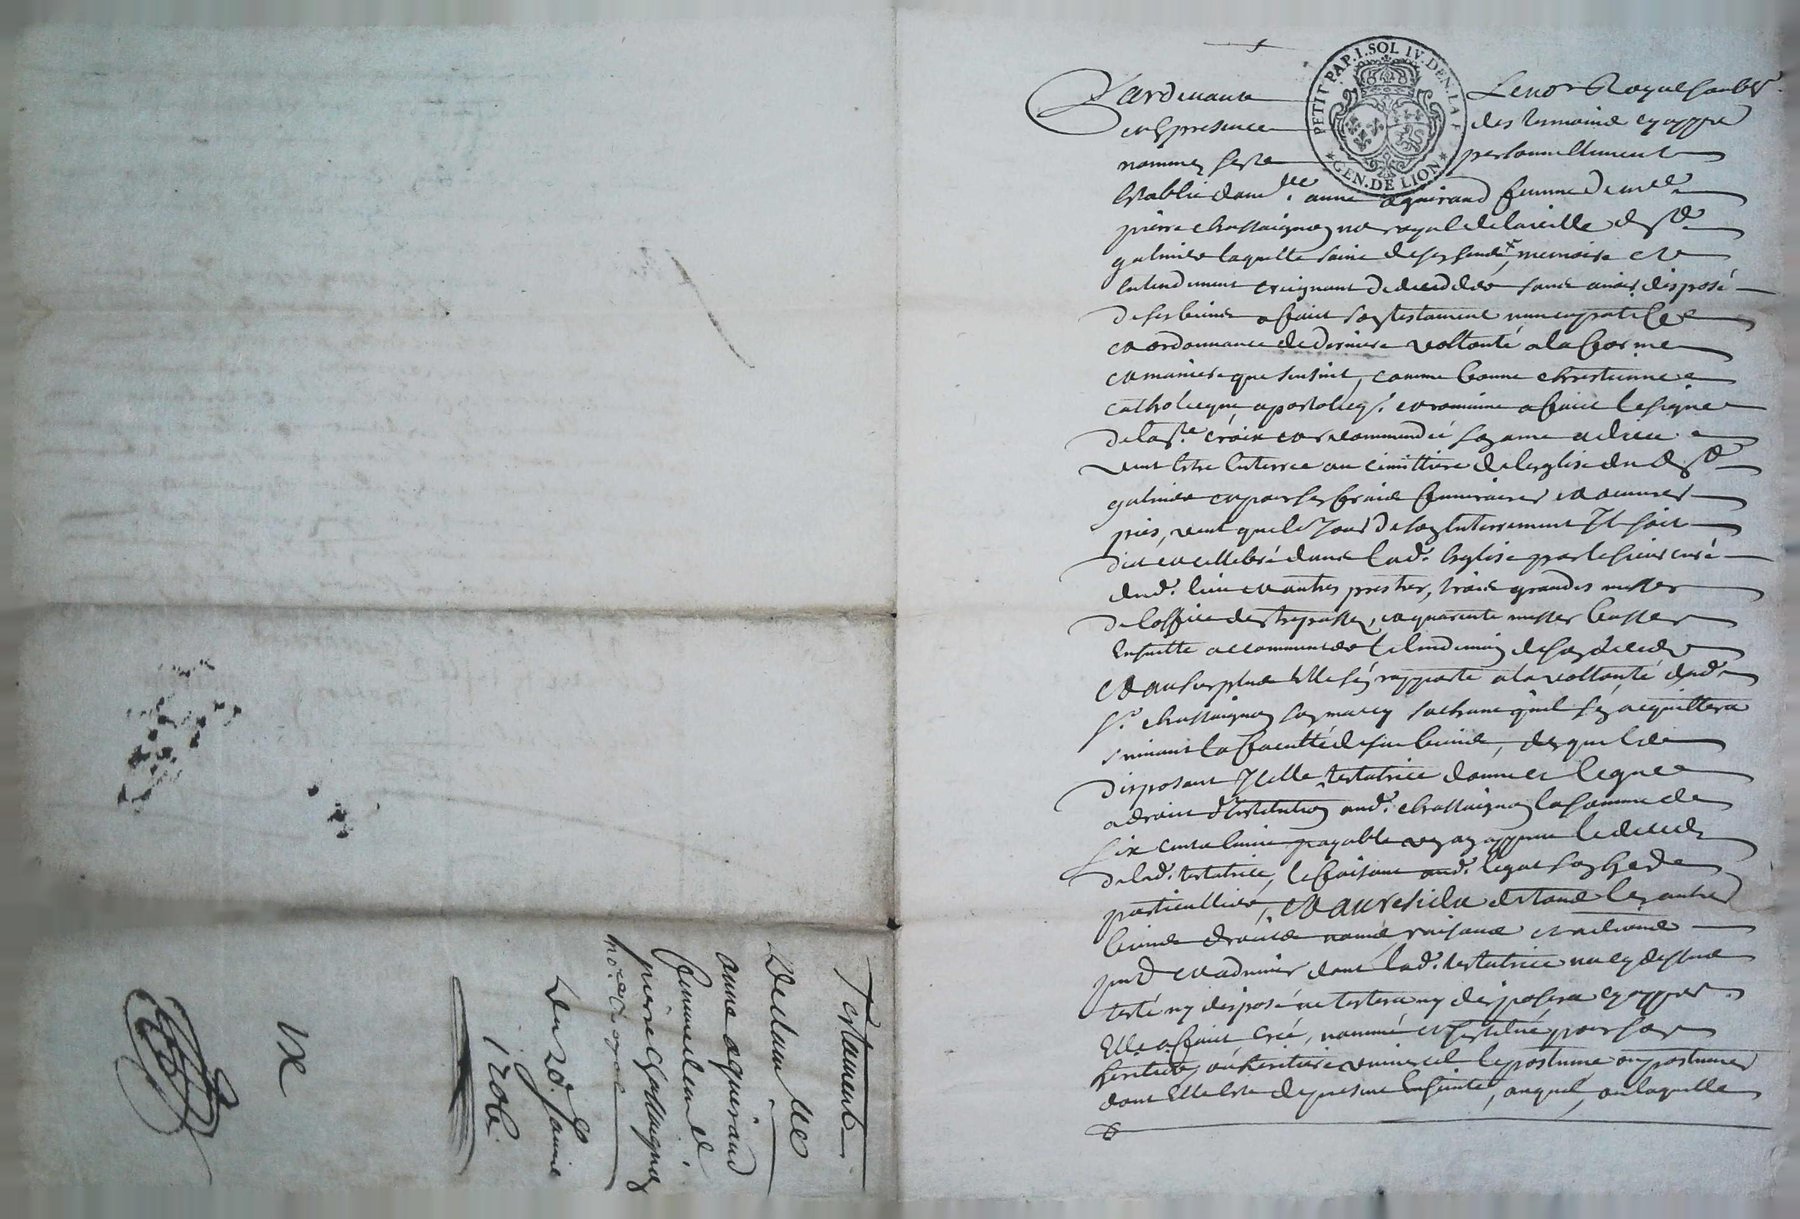 PETIT PAP. I. SOL IV. DEN. LA F
GEN. DE LION
Pardevant Le nor Royal soubs.
en presence des tesmoins cy appre
nommez personnellement
establie dam.lle anne aguiraud femme de me
pierre chassaignon nore royal de la ville de St
galmier laquelle saine de ses sens, memoire et
entendement creignant de deceder sans avoir disposé
de ses biens a faict son testament nuncupatif et
et ordonnance de derniere vollonté a la forme
et maniere que sensuit, comme bonne chrestienne
catholicque, apostolicq. et romaine a faict le signe
de la ste croix et recommendé son ame a dieu
veut estre enterree au cimittiere de leglise dud St
galmier et pour ses frais funeraires et oeuvres
pies, veut que le jour de son enterrement Il soit
dit et cellebré dans lad. Eglise par le sieur curé
dud. lieu et autres prestres, trois grandes messes
de loffice des trepassez, et quarente messes basses
Ensuitte a commencer le lendemain de son deceds
Et au surplus elle sen rapporte a la vollonté dud.
sr. chassaignon son mary sachant quil sen acquittera
suivant la faculté de ses biens, desquels
disposant Icelle testatrice donne et legue
a droict d'Institution aud. chassaignon la somme de
six cents livres payable un an appres le deceds
de lad. testatrice, le faisant aud. legat son her.
particullier, Et au residu et tous les autres
biens droicts noms raisons et actions
dont lad. testatrice na cy dessus
testé ny disposé ne testera ny disposera cy appres
Elle a faict creé, nommé et Institué pour son
heritier, ou heritiere universel le postume ou postumes
dont elle est de present enceinte, auquel, ou laquelle
Testament
De dam.lle
anne aguiraud
femme de me
pierre Chassaignon
nore royal
Du 20 Janvier
1706.